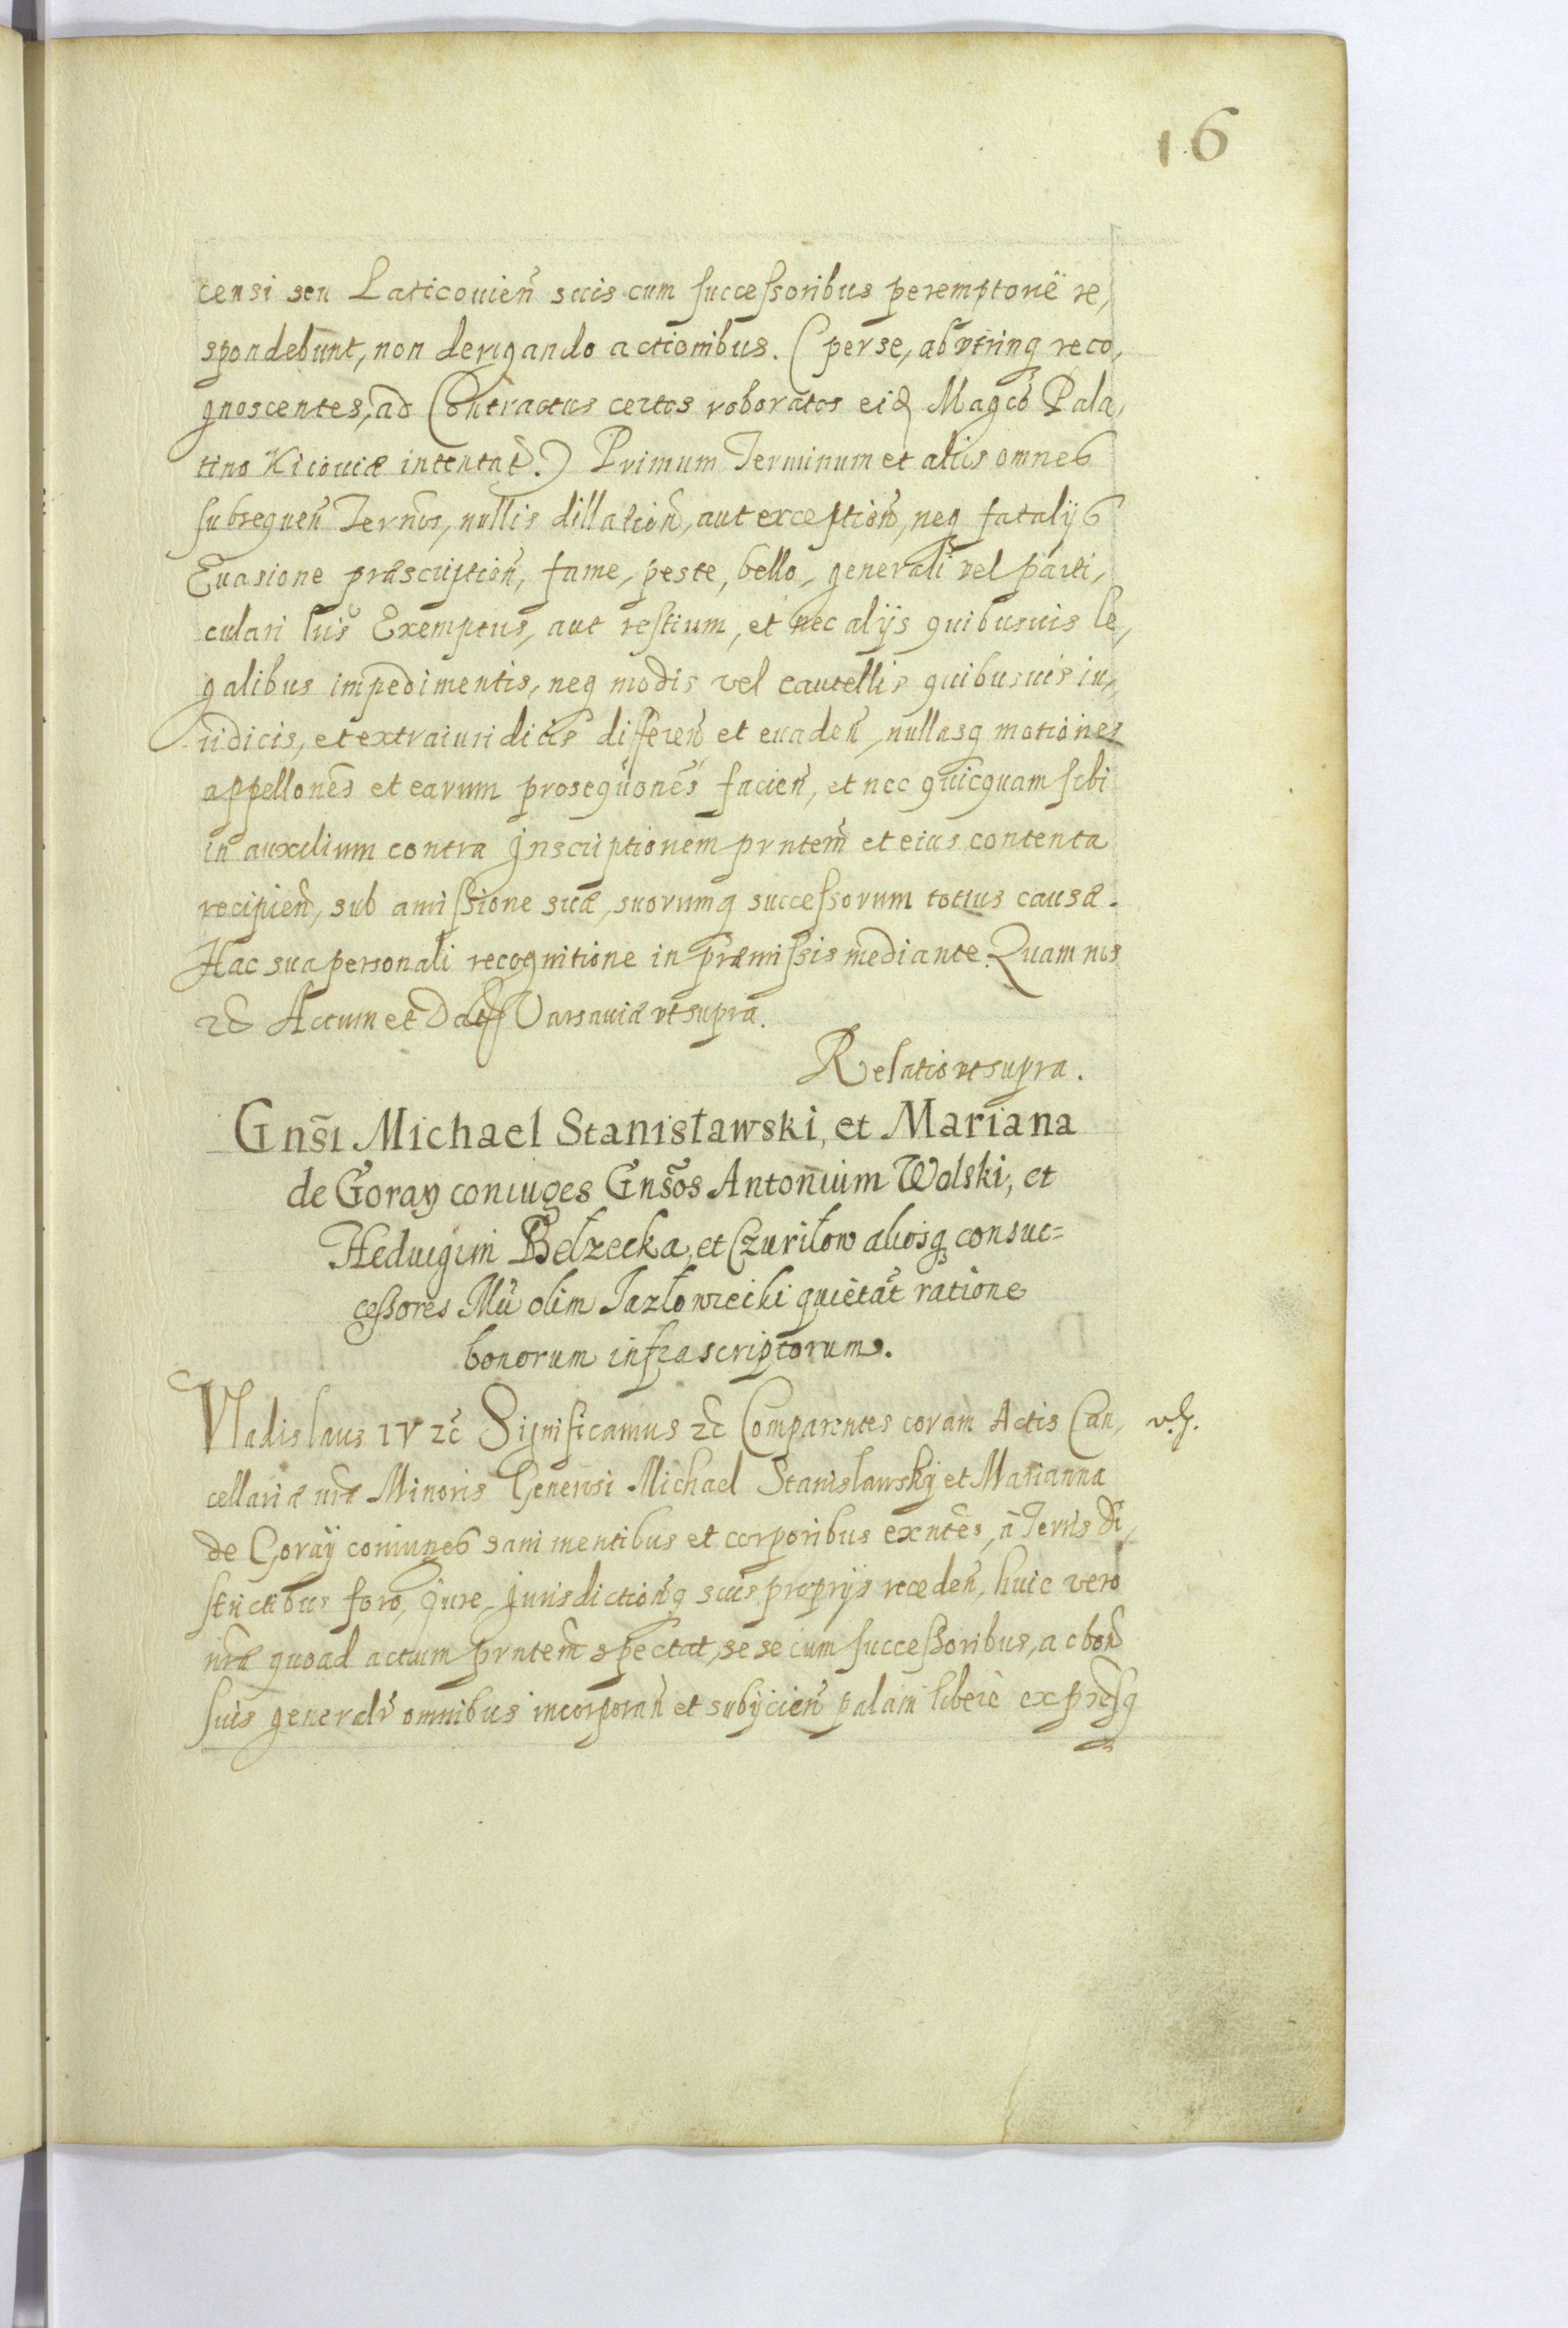 16
censi seu Laticouień suis cum successoribus peremptoriè re,
spondebunt, non derigando actionibus. (per se, ab vtrinq reco,
gnoscentes, ad Contractus certos roboratos eid Magcō Pala,
tino Kiiouiæ intentat̄.) Primum Terminum et alios omnes
subsequeñ Terños, nullis dillatioñ, aut exceptioñ, neq fatalijs
Euasione præscriptioñ, fame, peste, bello, generali vel parti,
culari luis Exemptus, aut restium, et nec alijs quibusuis le,
galibus impedimentis, neq modis vel cautellis quibusuis iu,
ridicis, et extraiuridicis differeñ et euadeñ, nullasq motiones
appellonēs et earum prosequonēs facieñ, et nec quicquam sibi
in auxilium contra Inscriptionem prntem̄ et eius contenta
recipieñ, sub amissione suæ, suorumq successorum totius causæ.
Hac sua personali recognitione in præmissis mediante. Quam nos
2c̄ Actum et Dat Varsauiæ vt supra.
Relatio vt supra.
Gnsi Michael Stanisławski, et Mariana
de Goray coniuges Gnsos Antonium Wolski, et
Heduigim Bełzecka, et Czuriłow aliosq consuc=
cessores Mci olim Jazłowiecki quietat̄ ratione
bonorum infrascriptorum.
Vladislaus IV 2c̄ Significamus 2c̄ Comparentes coram Actis Can,
cellariæ nræ Minoris Generosi Michael Stanislawskij et Marianna
de Goraÿ coniuges sani mentibus et corporibus exntēs, à Terris Di,
strictibus foro, Jure, Jurisdictionq suis proprijs recedeñ, huic vero
nræ quoad actum prntem̄ spectat, se se cum successoribus, ac boñ
suis generalr omnibus incorporañ et subijcieñ palam liberè expresq